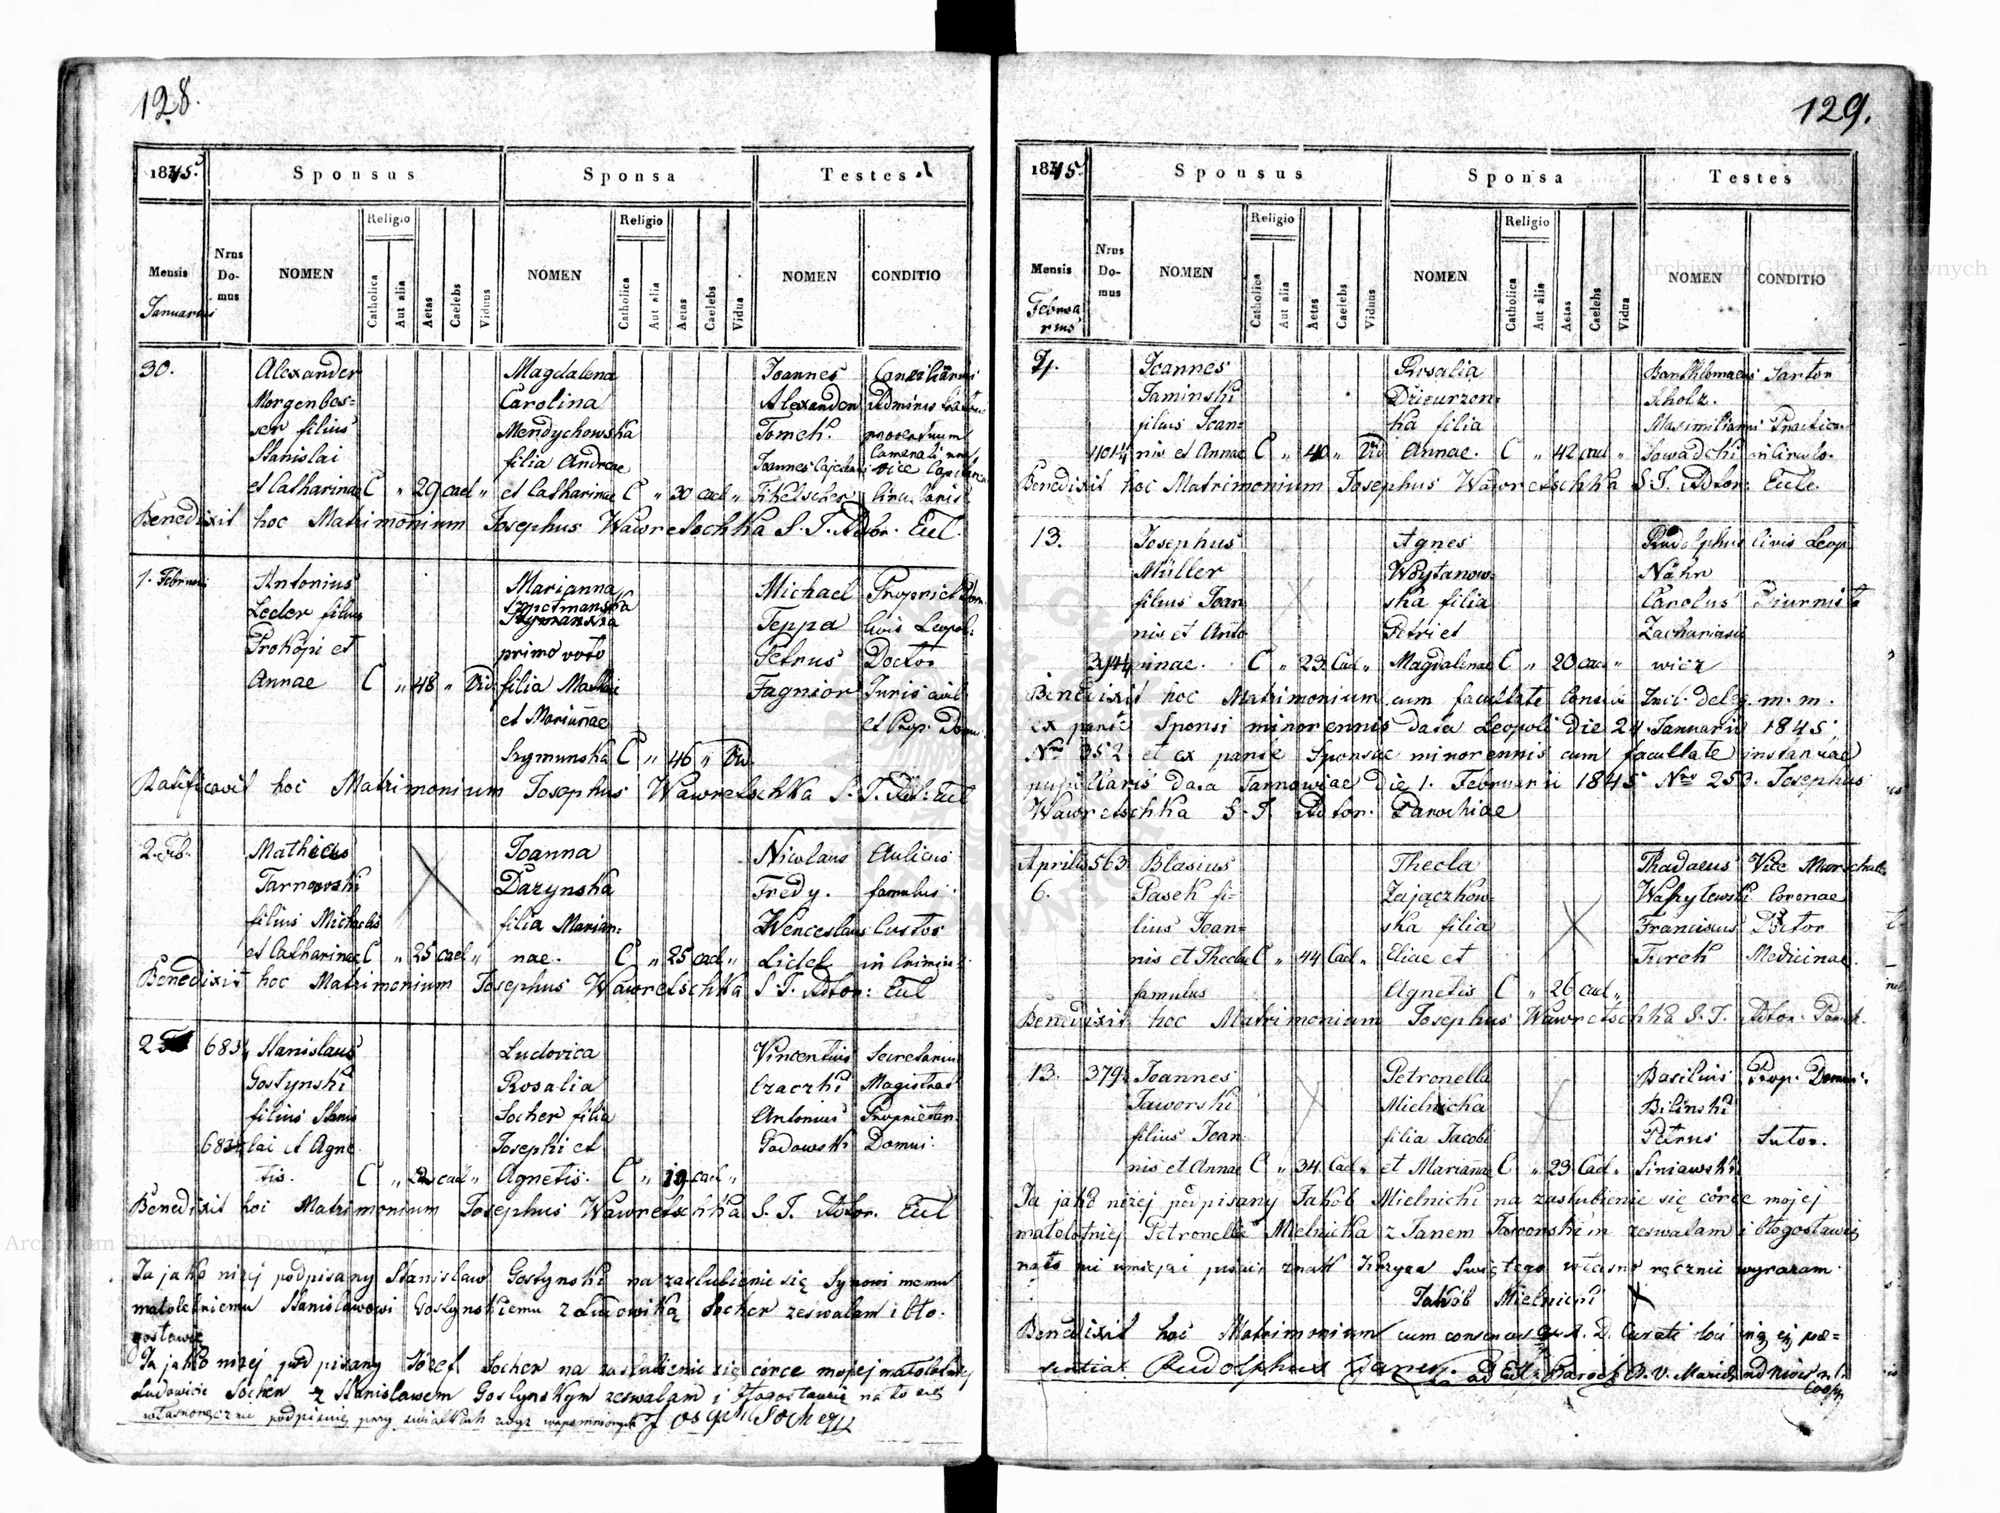 128.
1845.
Sponsus
Sponsa
Testes
Mensis
Januarius
Nrus Domus
NOMEN
Religio
Catholica
Aut alia
Aetas
Caelebs
Viduus
NOMEN
Religio
Catholica
Aut alia
Aetas
Caelebs
Vidua
NOMEN
CONDITIO
30. Alexander Magdalena Joannes
Morgenbes= Carolina Alexander
ser filius Mendychowska Tomek. proventuum
Stanislai filia Andreae
et Catharinae C „ 29 cael „ et Catharinae C „ 30 cael „ Circularis
Benedixit hoc Matrimonium Josephus Wawretschka S. T. Dtor. Eccl.
1. Februarii Antonius Marianna Michael
Leder filius Teppa civis Leopol:
Prokopi et primo voto Petrus Doctor
Annae C „ 48 „ Vid. filia Mathiae Fagnior Juris civil
et Mariannae et Prop. Domu
Szymunska C „ 46 „ Vid
Ratificavit hoc Matrimonium Josephus Wawretschka S. T. Dtor: Eccl
2. Feb. Mathias Joanna Nicolaus Aulicus
Tarnowski Dazynska Fredy. famulus
filius Michaelis filia Marian= Wenceslaus Custos
et Catharinae C „ 25 cael „ nae. C „ 25 cael „ Lidel in Crimin:
Benedixit hoc Matrimonium Josephus Wawretschka S. T. Dtor: Eccl
2 683 Stanislaus Ludovica Vincentius Secretarius
Gostynski Rosalia Czaczki Magistrat
filius Stanis Socher filia Antonius Proprietar.
lai et Agne Josephi et Godowski Domus.
tis. C „ cael „ Agnetis. C „ 19 cael „
Benedixit hoc Matrimonium Josephus Wawretschka S. T. Dtor. Eccl
Ja jako niżej podpisany Stanisław Gostynski na zaslubienie się Synowi memu
małoletniemu Stanisławowi Gostynskiemu z Ludowiką Socher zezwalam i bło.
gosławię
Ja jako niżej podpisany Józef Socher na zaslubienie się córce mojej małoletniej
Ludowice Socher z Stanisławem Gostynskym zezwalam i błogosławię na to się
własnoręcznie podpisuię przy swiatkach wyż wspomnionych Joseph Socher
129.
1845.
Sponsus
Sponsa
Testes
Mensis
Februarius
Nrus Domus
NOMEN
Religio
Catholica
Aut alia
Aetas
Caelebs
Viduus
NOMEN
Religio
Catholica
Aut alia
Aetas
Caelebs
Vidua
NOMEN
CONDITIO
Joannes Rosalia Bartholomaeus Sartor
Taminski Dziourzon= Scholz.
filius Joan= ka filia Maximilianus
nis et Annae C „ 40 „ Vid Annae. C „ 42 cael „
Benedixit hoc Matrimonium Josephus Wawretschka S. T. Dtor: Eccle.
13. Josephus Agnes Rudolphus civis Leop
Müller Woytanow= Nahr
filius Joan ska filia Carolus Diurnista
nis et Anto Petri et Zachariasie
ninae. C „ 23 Cael „ Magdalenae C „ 20 cael „ wicz
Benedixit hoc Matrimonium cum facultate m. m.
ex parte Sponsi minorennis data Leopoli die 24 Januarii 1845
Nro 352 et ex parte Sponsae minorennis cum facultate instantiae
pupillaris data Tarnoviae die 1. Februarii 1845 Nro 253. Josephus
Wawretschka S. T. Dtor. Parochiae
Aprilis 563 Blasius Thecla Thadaeus Vice Marschal
6. Pasek fi= Zajączkow Coronae
lius Joan= ska filia Franciscus Doctor
nis et Theclae C „ 44 Cael „ Eliae et Turek Medicinae.
famulus Agnetis C „ 26 cael „
Benedixit hoc Matrimonium Josephus Wawretschka S. T. Dtor.
13. 379 Joannes Petronella Basilius Prop. Domus.
Jaworski Mielnicka Bilinski
filius Joan filia Jacobi Petrus Sutor.
nis et Annae C „ 34 Cael „ et Mariannae C „ 23 Cael „ Siniawski
Ja jako niżej podpisany Jakób Mielnicki na zaslubienie się córce mojej
małoletniej Petronelli Mielnicka z Janem Jaworskim zezwalam i błogosławię
na to nie umiejąc pisać znak Krzyża Świętego własno ręcznie wyrażam
Jakób Mielnicki X
Benedixit hoc Matrimonium cum consensu A. D. Curati loci
Rudolphus B. V. Mariae ad Nives
Archiwum Główne Akt Dawnych
Archiwum Główne Akt Dawnych